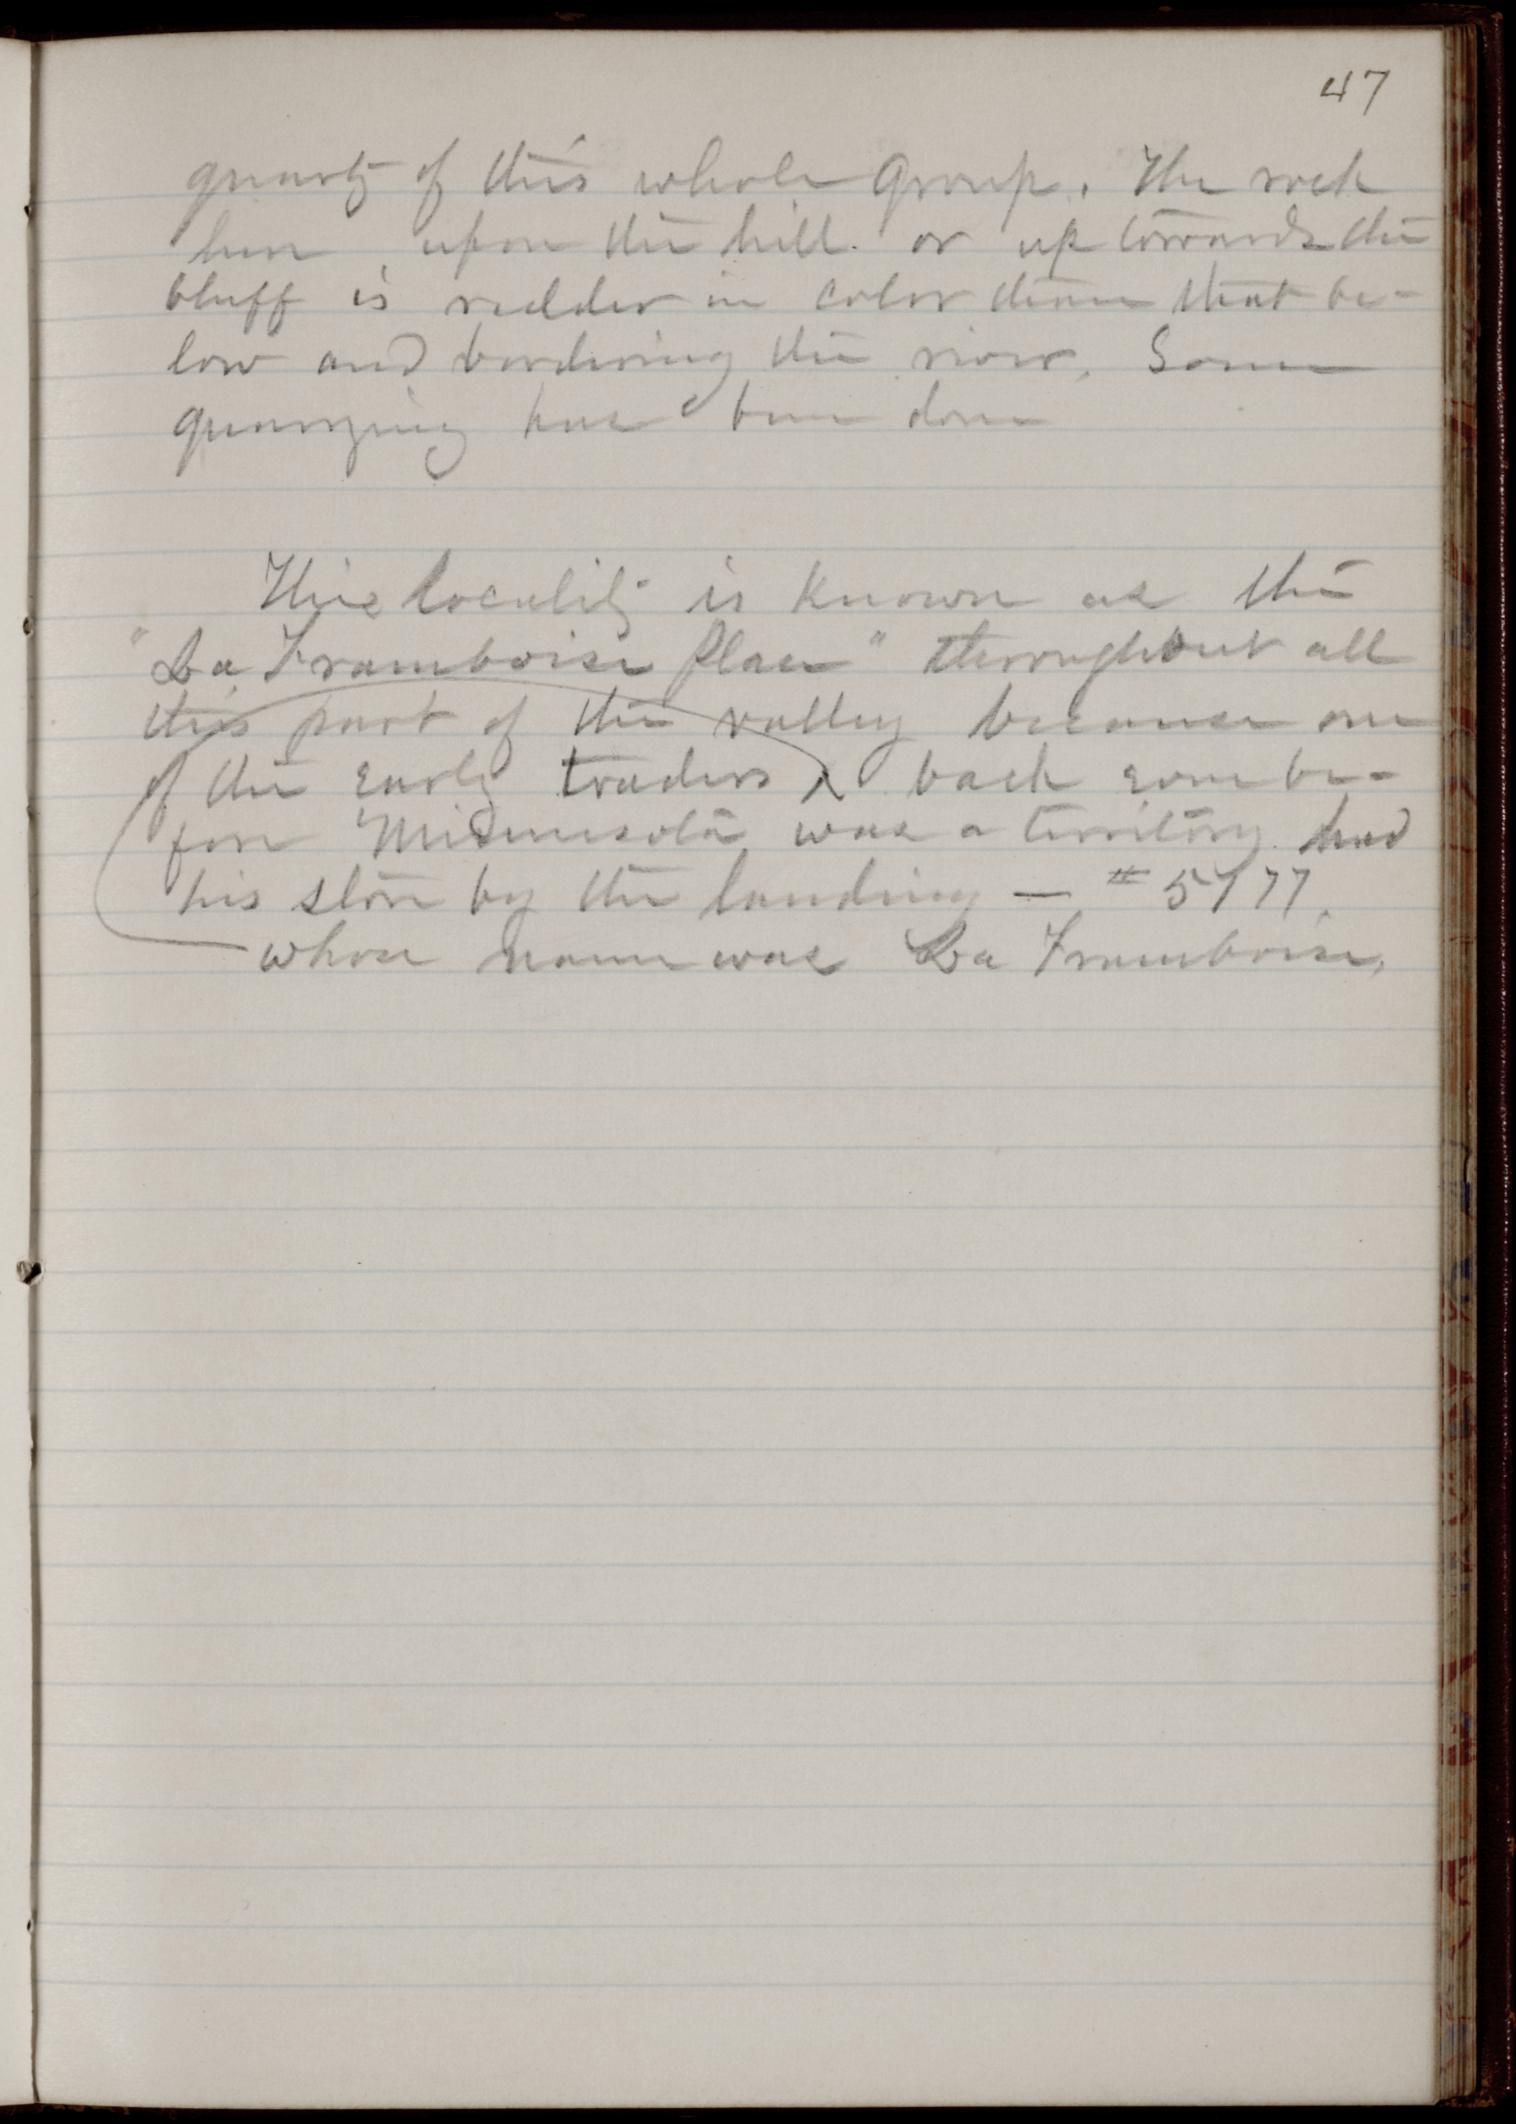 47
quartz of this whole group. The rock
here, upon the hill or up towards the
bluff is redder in color than that be-
low and bordering the river. Some
quarrying has been done
This locality is known as the
"La Framboise place" throughout all
this part of the valley because one
of the early traders ^ back some be-
fore Minnesota was a territory had
his store by the landing — #5177.
whose name was La Framboise.